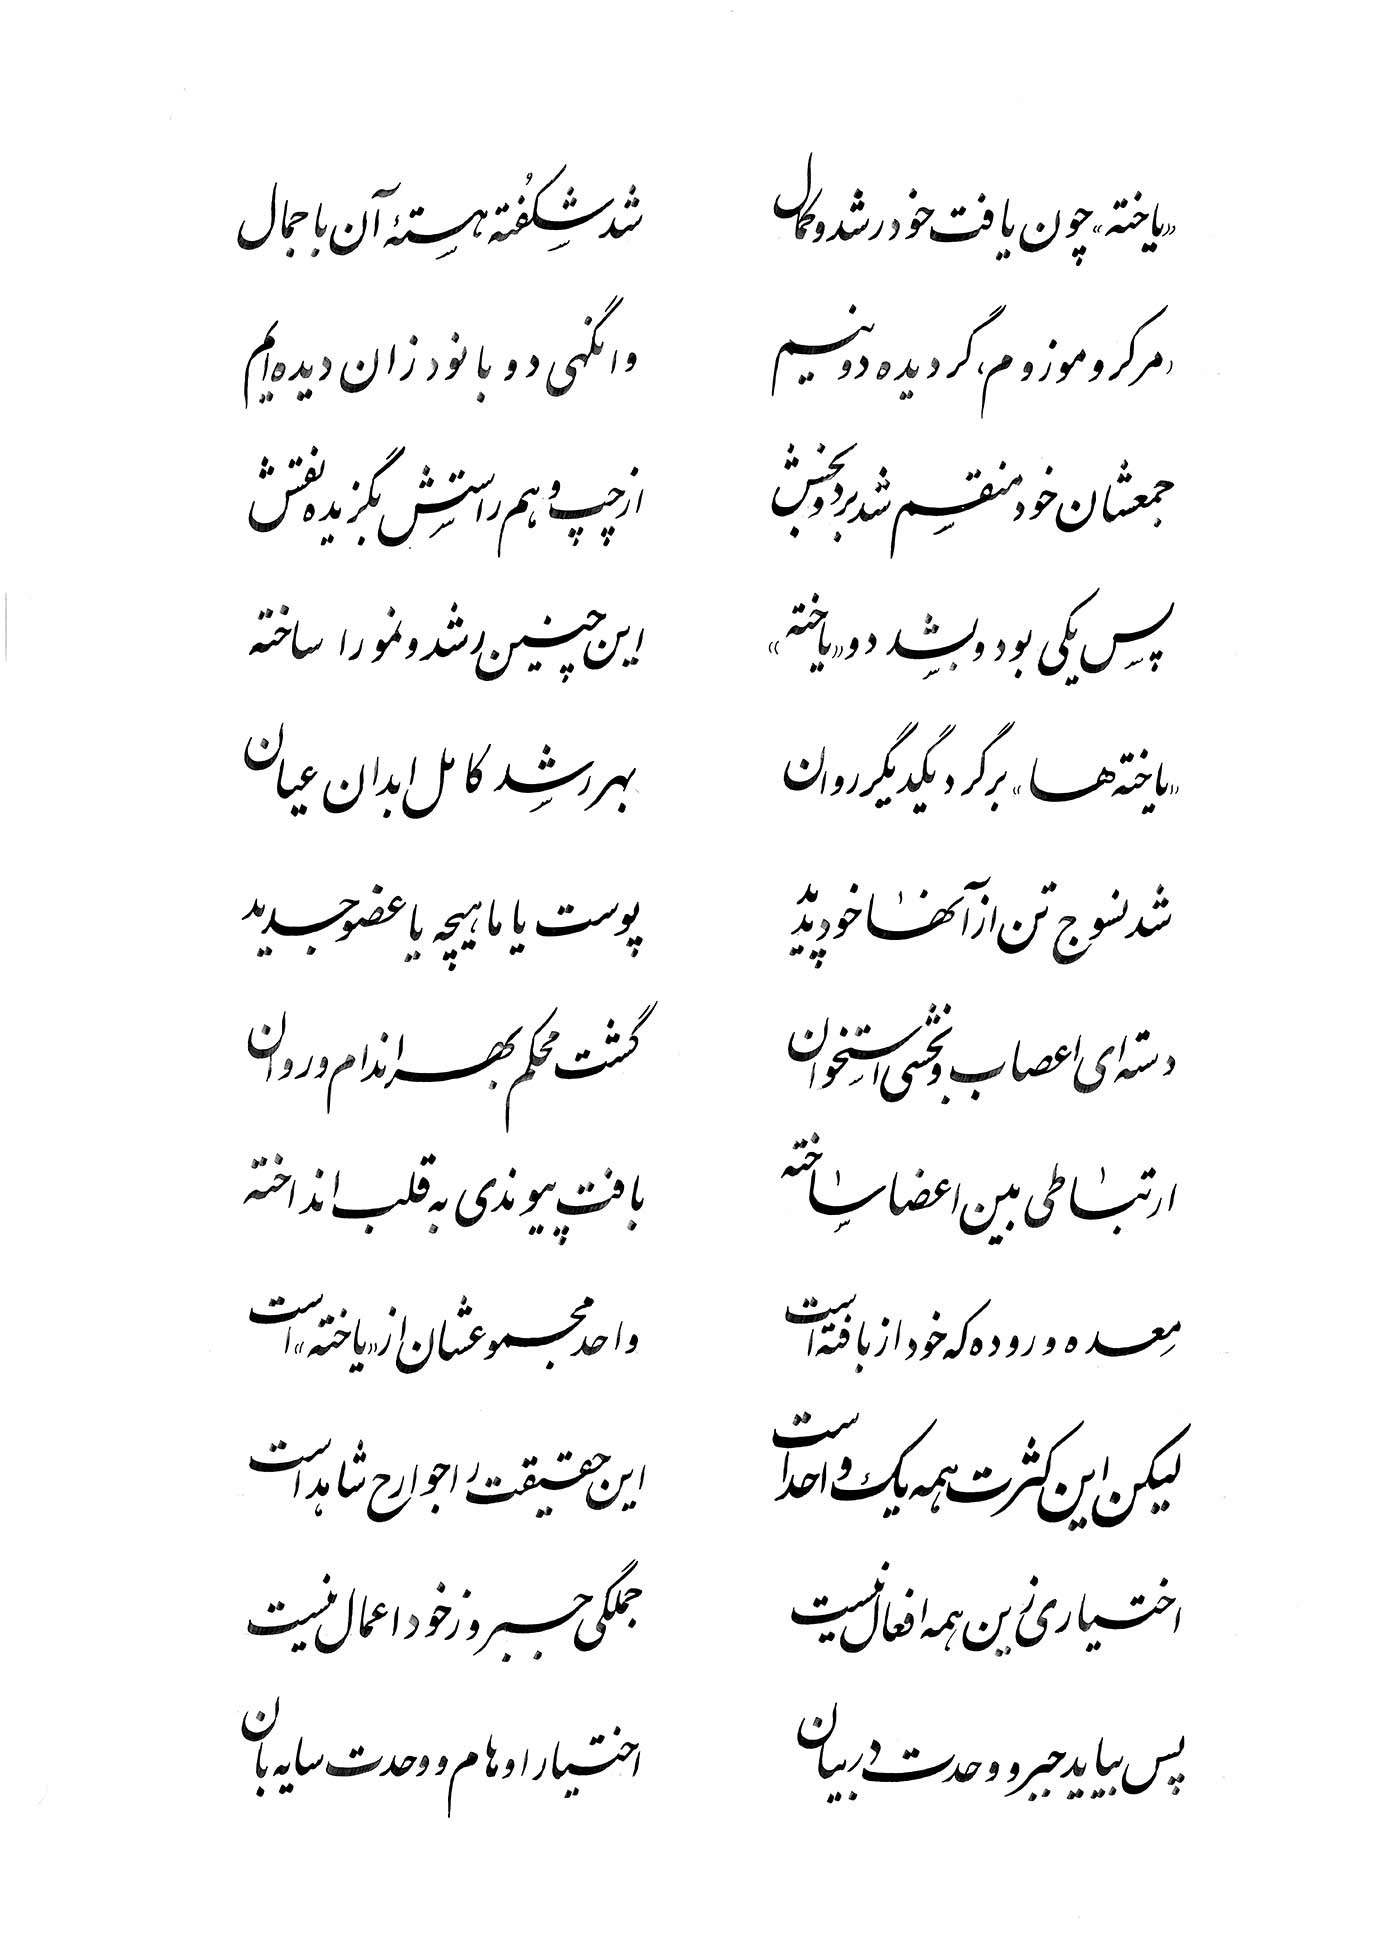 «یاخته» چون یافت خود رشد و کمال شد شِکُفته هستهٔ آن با جمال
«مرکز و موزوم» گردیده دو نیم وانگهی دو با نود زان دیده‌ایم
جمعشان خود منقسم شد بر دو بخش از چپ و هم راستش بگزیده نقش
پس یکی بود و بشد دو «یاخته» این چنین رشد و نمو را ساخته
«یاخته‌ها» بر گرد یکدیگر روان بهر رشد کامل ابدان عیان
شد نسوج تن از آنها خود پدید پوست یا ماهیچه یا عضو جدید
دسته‌ای اعصاب و بخشی استخوان گشت محکم بهر اندام و روان
ارتباطی بین اعضا ساخته بافت پیوندی به قلب انداخته
معده و روده که خود از بافته است واحد مجموعشان از «یاخته» است
لیکن این کثرت همه یک واحد است این حقیقت را جوارح شاهد است
اختیاری زین همه افعال نیست جملگی جبر و ز خود اعمال نیست
پس بیاید جبر و وحدت در بیان اختیار اوهام و وحدت سایه‌بان